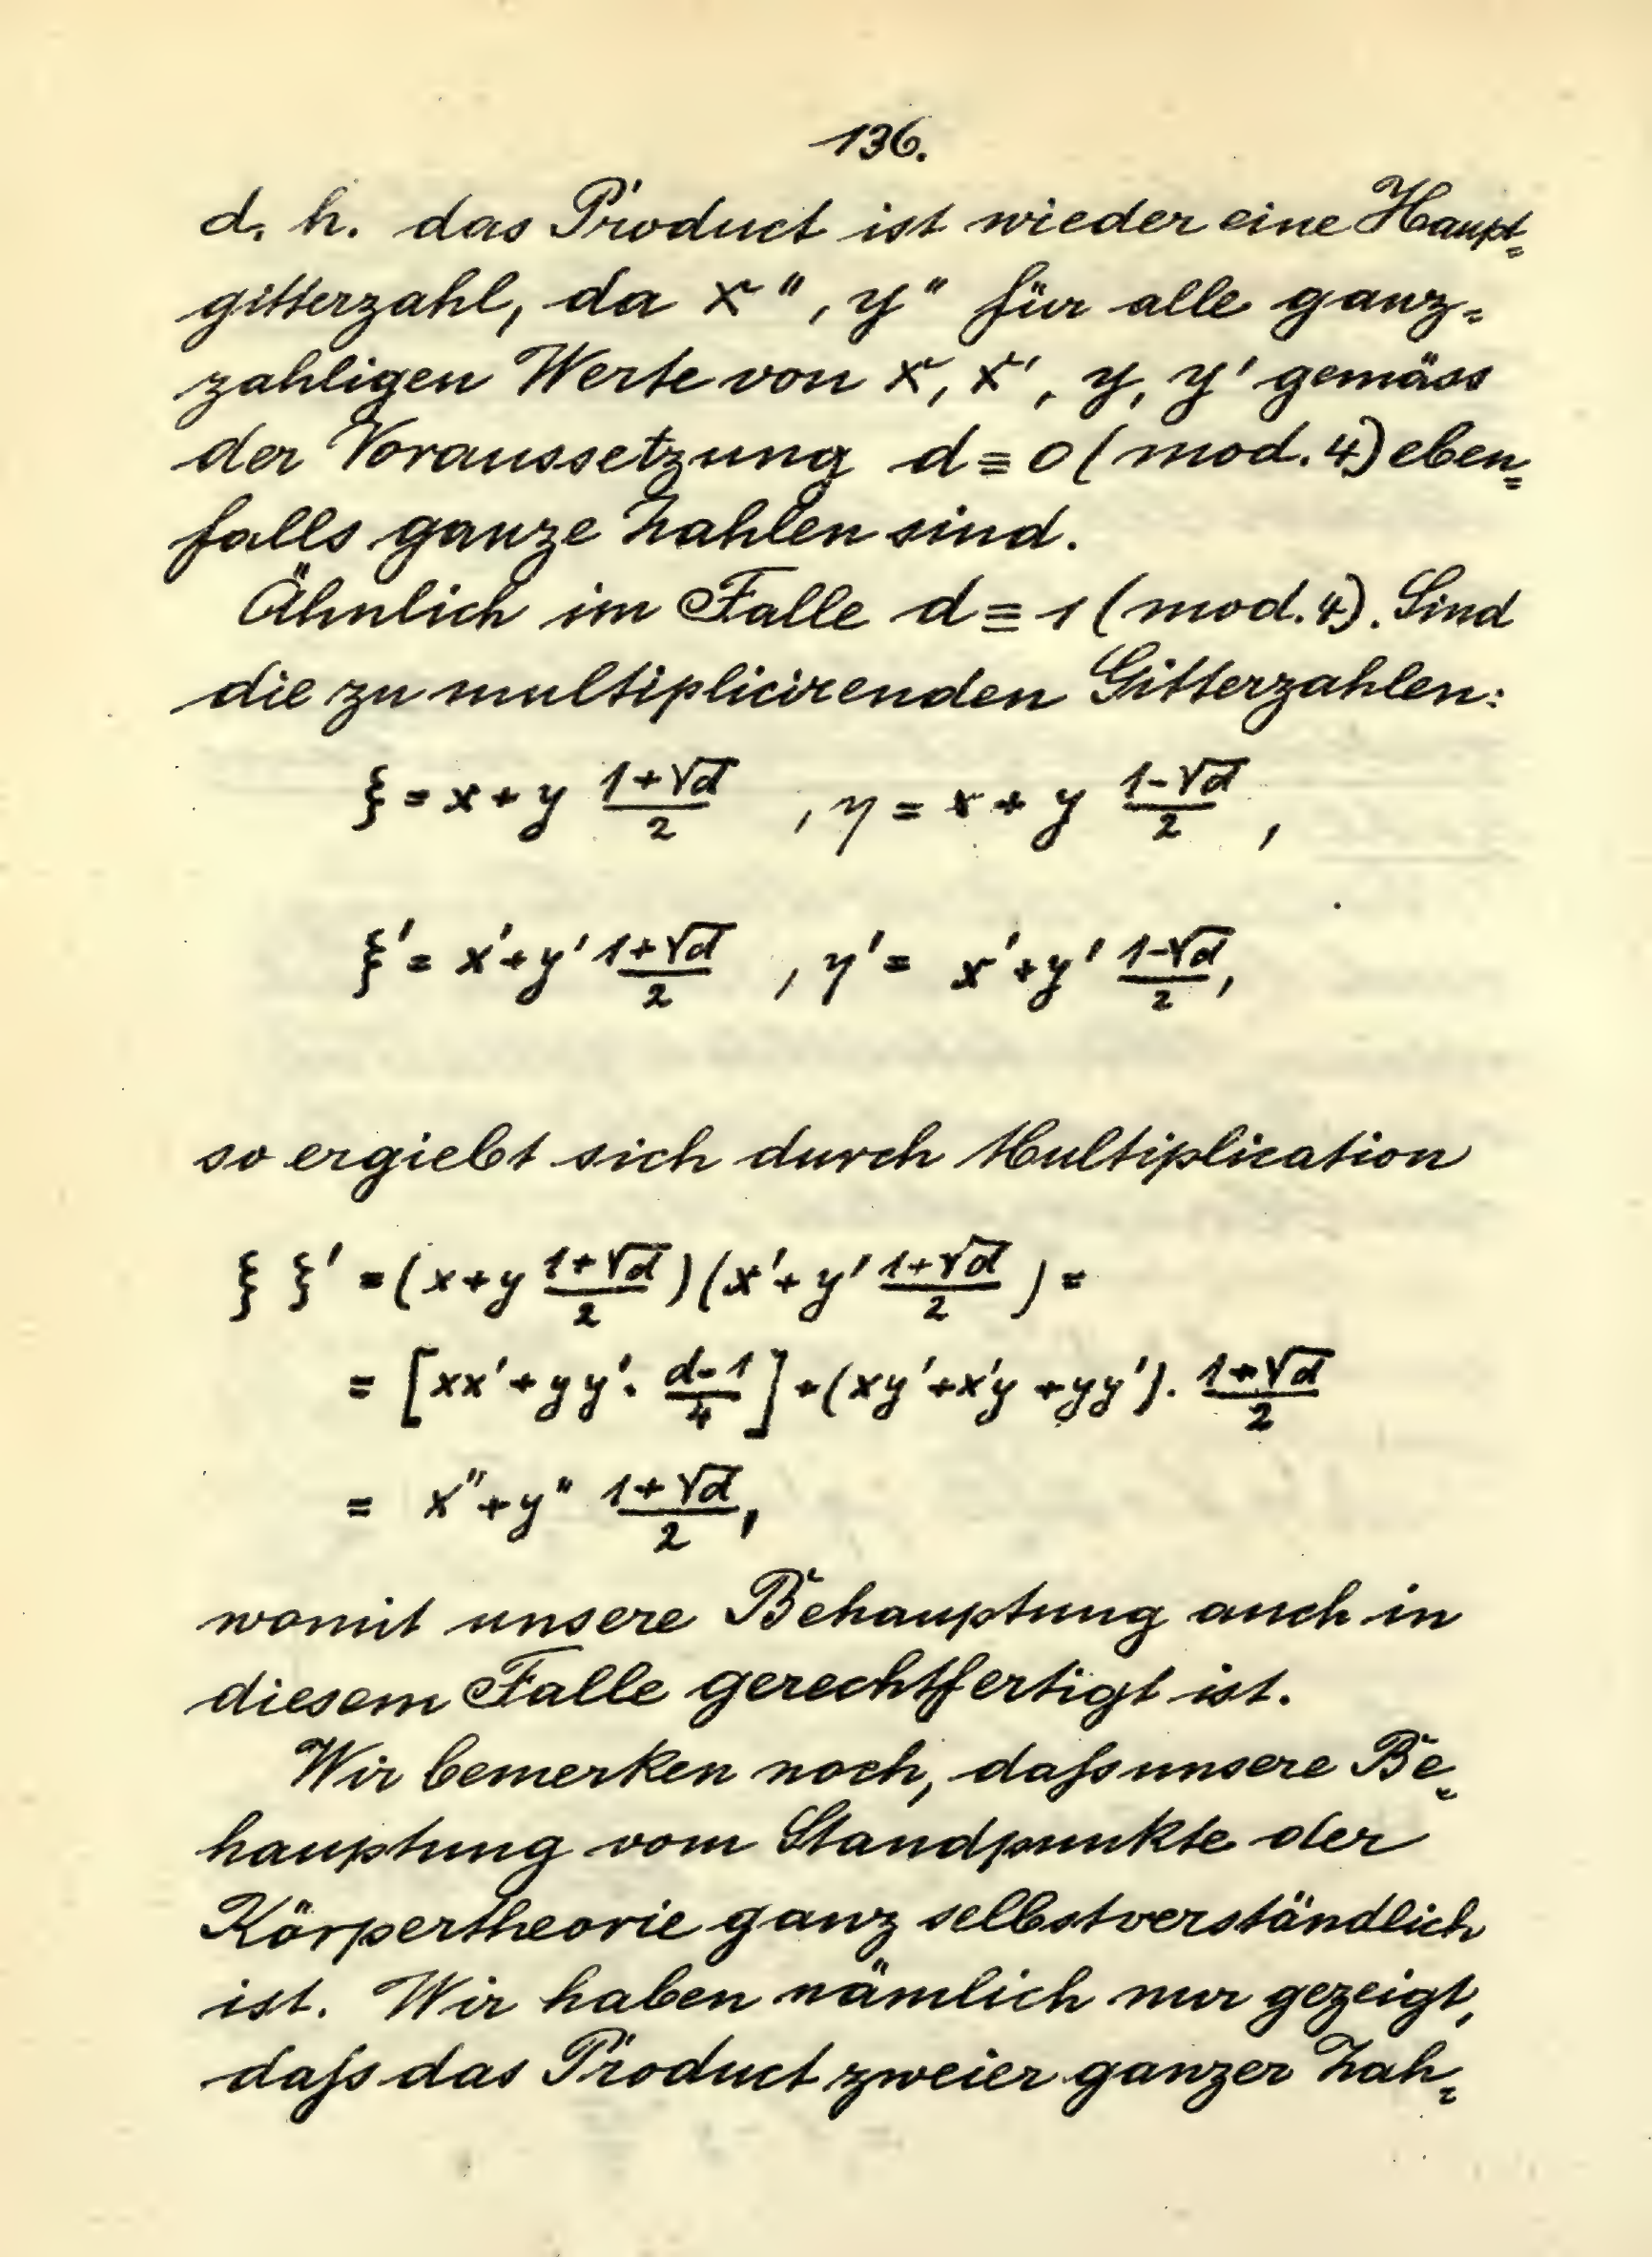 136.
d. h. das Product ist wieder eine Haupt=
gitterzahl, da x'', y'' für alle ganz=
zahligen Werte von x, x', y, y' gemäss
der Voraussetzung d ≡ 0 (mod. 4) eben=
falls ganze Zahlen sind.
Ähnlich im Falle d ≡ 1 (mod. 4). Sind
die zu multiplicirenden Gitterzahlen:
ξ = x + y \frac{1+√d}{2} , η = x + y \frac{1-√d}{2} ,
ξ' = x' + y' \frac{1+√d}{2} , η' = x' + y' \frac{1-√d}{2},
so ergiebt sich durch Multiplication
ξ ξ' = (x + y \frac{1+√d}{2}) (x' + y' \frac{1+√d}{2}) =
= [xx' + yy' · \frac{d-1}{4}] + (xy' + x'y + yy') · \frac{1+√d}{2}
= x'' + y'' \frac{1+√d}{2},
womit unsere Behauptung auch in
diesem Falle gerechtfertigt ist.
Wir bemerken noch, daſs unsere Be=
hauptung vom Standpunkte der
Körpertheorie ganz selbstverständlich
ist. Wir haben nämlich nur gezeigt,
daſs das Product zweier ganzer Zah=